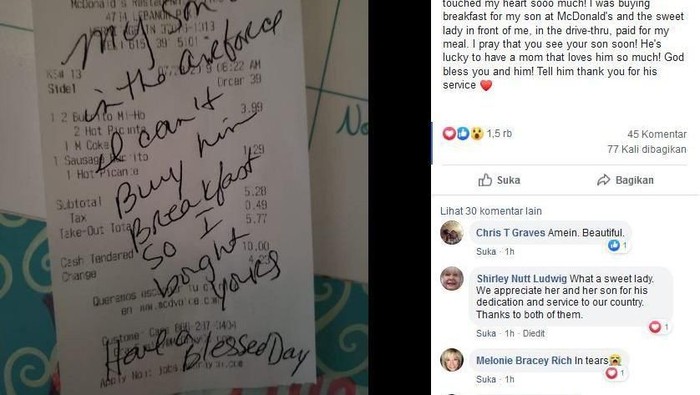 McDonald's Restaurant
4714 LEBANON
615 39 5101
KS# 13
06:22 AM
Side1
Order 39
1 2 Burrito Ml-Ho
3.99
2 Hot Picante
1 M Coke
1 Sausage Burrito
1.29
1 Hot Picante
Subtotal
5.28
Tax
0.49
Take-Out Total
5.77
Cash Tendered
10.00
Change
4.23
Queremos
en www.mcdvoice.com
Customer Care 866-237-0404
My son
in the airforce
I can't
Buy him
Breakfast
so I
bought
yours
Have a
Blessed Day
touched my heart sooo much! I was buying
breakfast for my son at McDonald's and the sweet
lady in front of me, in the drive-thru, paid for my
meal. I pray that you see your son soon! He's
lucky to have a mom that loves him so much! God
bless you and him! Tell him thank you for his
service ❤
1,5 rb
45 Komentar
77 Kali dibagikan
Suka
Bagikan
Lihat 30 komentar lain
Chris T Graves Amein. Beautiful.
1
Suka · 1h
Shirley Nutt Ludwig What a sweet lady.
We appreciate her and her son for his
dedication and service to our country.
Thanks to both of them.
1
Suka · 1h · Diedit
Melonie Bracey Rich In tears😭
1
Suka · 1h